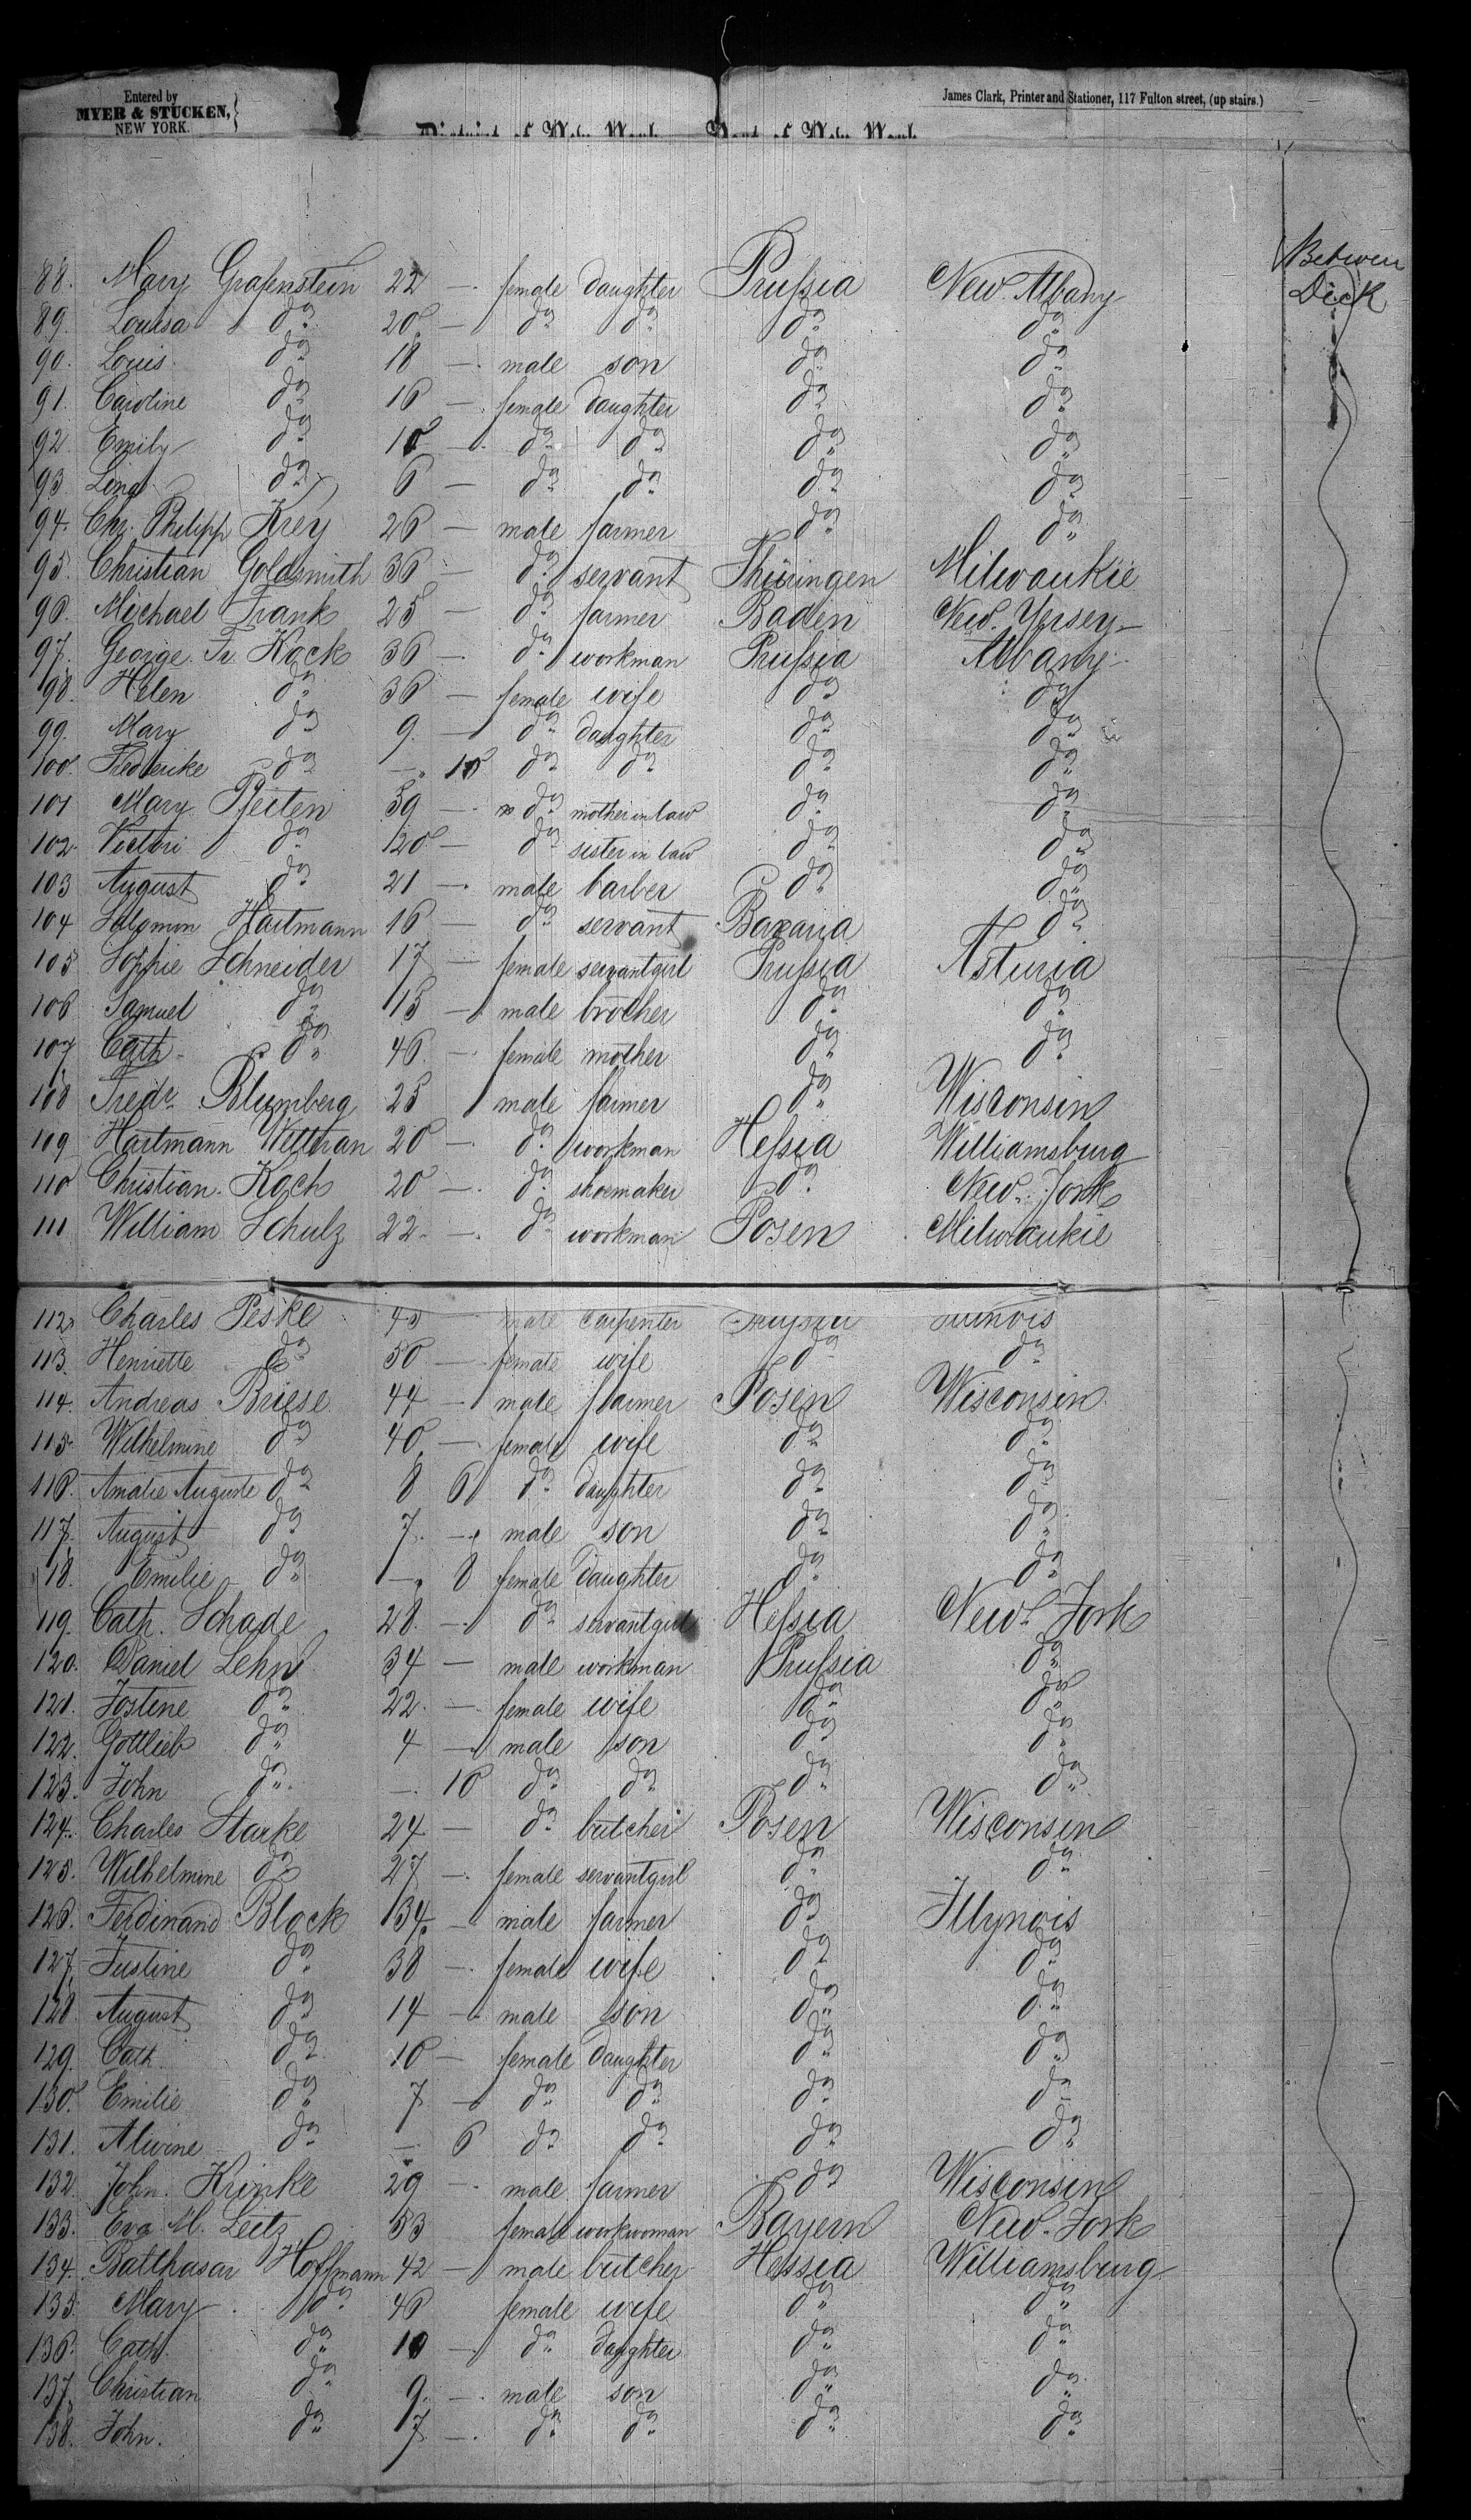 Entered by
MYER & STUCKEN,
NEW YORK.
James Clark, Printer and Stationer, 117 Fulton street, (up stairs.)
Between
Deck
88. Mary Grafenstein 22 — female daughter Prussia New Albany
89. Louisa do 20 — do do do do
90. Louis do 18 — male son do do
91. Caroline do 16 — female daughter do do
92. Emily do 10 — do do do do
93. Lina do 6 — do do do do
94. Chr. Philipp Krey 26 — male farmer do do
95. Christian Goldsmith 36 — do servant Thüringen Milwaukie
96. Michael Frank 25 — do farmer Baden New Yersey
97. George Fr. Kock 36 — do workman Prussia Albany
98. Helen do 36 — female wife do do
99. Mary do 9 — do daughter do do
100. Frederike do — 10 do do do do
101 Mary Peiten 59 — do mother in law do do
102. Victori do 20 — do sister in law do do
103 August do 21 — male barber do do
104 Salomon Hartmann 16 — do servant Bavaria do
105 Sophie Schneider 17 — female servantgirl Prussia Asturia
106 Samuel do 15 — male brother do do
107 Cath. do 46 — female mother do do
108 Fredr. Blumberg 25 male farmer do Wisconsin
109 Hartmann 20 — do workman Hessia Williamsburg
110 Christian Koch 20 — do shoemaker do New York
111 William Schulz 22 — do workman Posen Milwaukie
112. Charles Peske — male carpenter
113. Henriette do 50 — female wife do do
114. Andreas Briese 44 — male farmer Posen Wisconsin
115. Wilhelmine do 40 — female wife do do
116. Amalie Auguste do 8 6 do daughter do do
117. August do 7 — male son do do
118. Emilie do — 8 female daughter do do
119. Cath. Schade 28 — do servantgirl Hessia New York
120. Daniel Lehn 34 — male workman Prussia do
121. Jostine do 22 — female wife do do
122. Gottlieb do 4 — male son do do
123. John do — 10 do do do do
124. Charles Starke 24 — do butcher Posen Wisconsin
125. Wilhelmine do 27 — female servantgirl do do
126. Ferdinand Block 34 — male farmer do Illynois
127. Justine do 38 — female wife do do
128. August do 14 — male son do do
129. Cath. do 10 — female daughter do do
130. Emilie do 7 — do do do do
131. Alwine do — 6 do do do do
132. John Krinke 29 — male farmer do Wisconsin
133. Eva M. Leitz 53 female workwoman Bayern New York
134. Balthasar Hoffmann 42 — male butcher Hessia Williamsburg
135. Mary do 46 female wife do do
136. Cath. do 10 — do daughter do do
137. Christian do 9 — male son do do
138. John. do 7 — do do do do